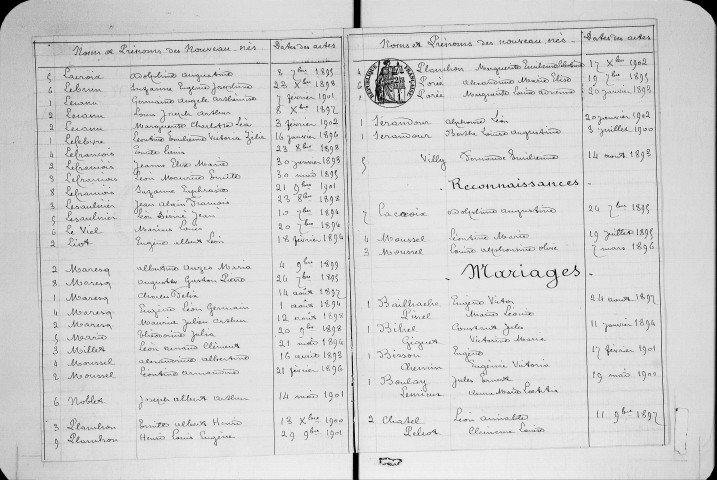 Noms et Prénoms des Nouveau-nés Dates des actes
5 Lacroix Adolphine Augustine 8 7bre 1895
6 Lebrun Suzanne Eugénie Joséphine 23 Xbre 1898
1 Lecanu Germaine Angèle 7 février 1901
2 Lecanu Louis Joseph Arthur 8 Xbre 1897
2 Lecanu Marguerite Charlotte 3 février 1902
1 Lefebvre Léontine Emilienne Victoria Zélie 16 janvier 1896
4 Lefrançois Louis 23 8bre 1898
2 Lefrançois Jeanne Elise Marie 30 janvier 1893
3 Lefrançois Léon Maurice 30 mai 1895
8 Lefrançois Suzanne 21 9bre 1901
3 Lesaulnier Jean Alain François 23 8bre 1898
5 Lesaulnier Léon Désiré Jean 10 7bre 1894
6 Le Viel Marius Louis 20 7bre 1894
2 Liot Eugène Albert Léon 18 février 1896
2 Maresq Albertine Maria 4 9bre 1899
8 Maresq Auguste Gustave Pierre 24 7bre 1895
1 Maresq Charles Félix 14 août 1897
4 Maresq Eugène Léon Germain 1 août 1894
2 Maresq Maurice Julien Arthur 12 août 1898
5 Marie Julia 20 9bre 1898
3 Millet Léon Clément 21 mai 1894
4 Moussel Alexandrine Albertine 16 août 1893
2 Moussel Léontine 21 février 1896
6 Noblet Joseph Albert Arthur 14 mai 1901
3 Planchon Albert Henri 13 Xbre 1900
9 Planchon Henri Louis Eugène 29 9bre 1901
Noms et Prénoms des nouveau-nés Dates des actes
4 Planchon Marguerite 17 Xbre 1902
6 Lorée Alexandrine Marie 19 7bre 1895
1 Lorée Marguerite Louise 20 janvier 1893
1 Serandour Alphonse Léon 20 janvier 1902
1 Serandour Berthe Louise Augustine 3 juillet 1900
5 Villy Fernande Emilienne 14 août 1893
Reconnaissances
7 Lacroix Adolphine Augustine 24 7bre 1895
4 Moussel Léontine Marie 19 juillet 1895
3 Moussel Louise Alphonsine 7 mars 1896
- Mariages -
1 Bailhache Eugène Victor 24 août 1897
Pinel Marie Léonie
1 Bihel Constant Jules 11 janvier 1894
Giguet Victorine Maria
1 Bisson Eugène 17 février 1901
Eugénie Victoria
1 Boulay Jules 19 mai 1900
Anne Marie
2 Chatel Léon Aimable 11 9bre 1897
Clémence Louise